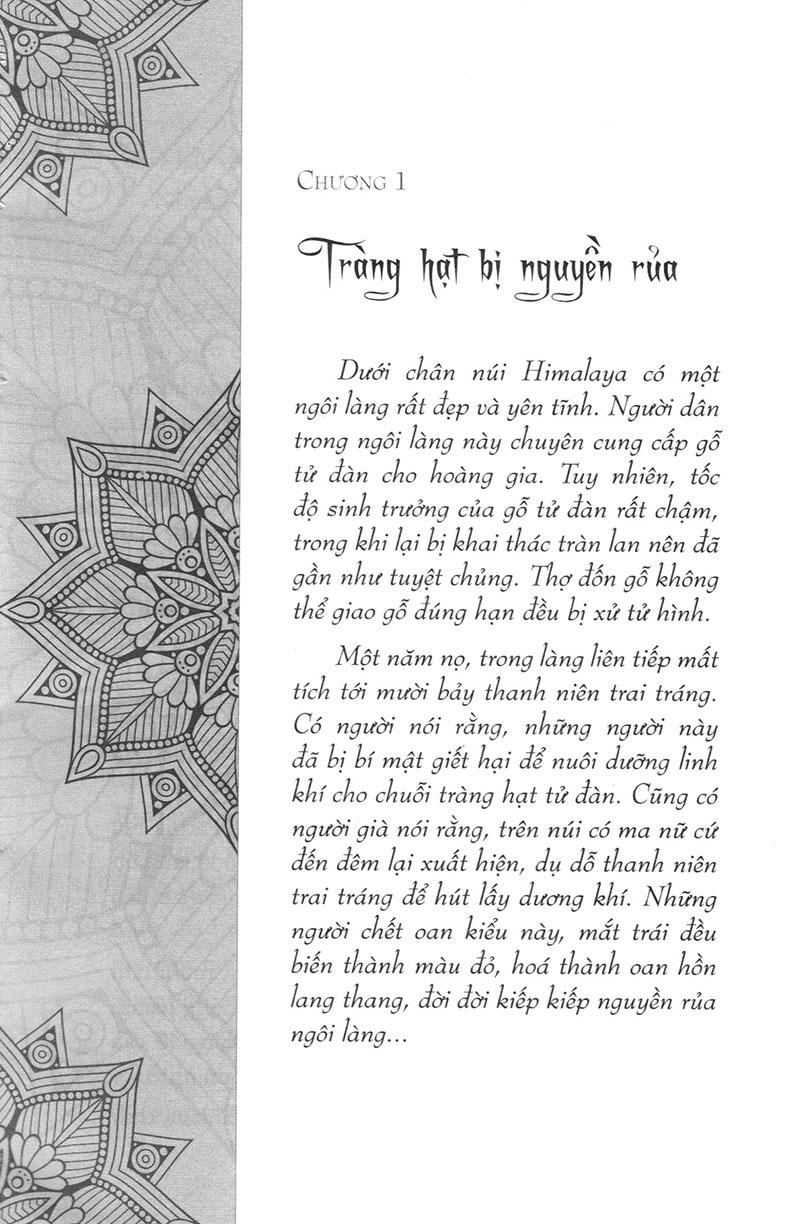 CHƯƠNG 1
Tràng hạt bị nguyền rủa
Dưới chân núi Himalaya có một
ngôi làng rất đẹp và yên tĩnh. Người dân
trong ngôi làng này chuyên cung cấp gỗ
tử đàn cho hoàng gia. Tuy nhiên, tốc
độ sinh trưởng của gỗ tử đàn rất chậm,
trong khi lại bị khai thác tràn lan nên đã
gần như tuyệt chủng. Thợ đốn gỗ không
thể giao gỗ đúng hạn đều bị xử tử hình.
Một năm nọ, trong làng liên tiếp mất
tích tới mười bảy thanh niên trai tráng.
Có người nói rằng, những người này
đã bị bí mật giết hại để nuôi dưỡng linh
khí cho chuỗi tràng hạt tử đàn. Cũng có
người già nói rằng, trên núi có ma nữ cứ
đến đêm lại xuất hiện, dụ dỗ thanh niên
trai tráng để hút lấy dương khí. Những
người chết oan kiểu này, mắt trái đều
biến thành màu đỏ, hoá thành oan hồn
lang thang, đời đời kiếp kiếp nguyền rủa
ngôi làng...